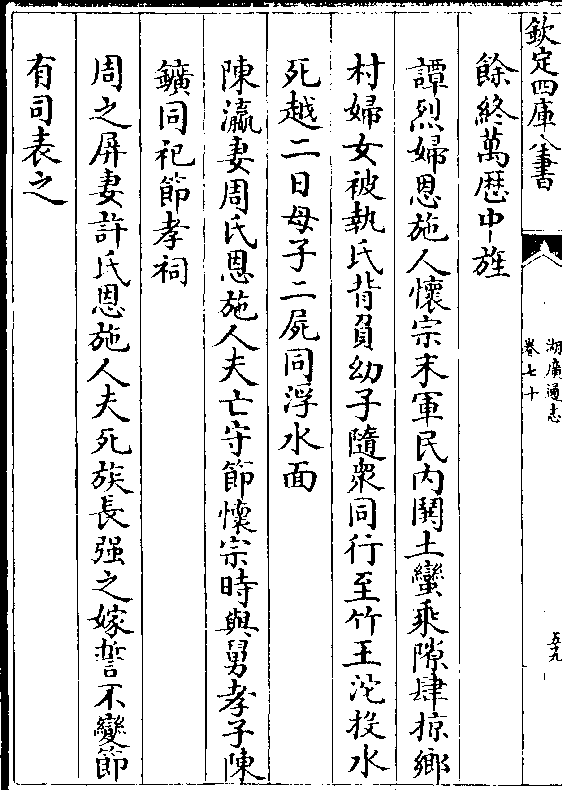 欽定四庫全書
湖廣通志
卷七十
五九
餘終萬歴中旌
譚烈婦恩施人懷宗末軍民内鬨土蠻乘隙肆掠鄉
村婦女被執氏背負幼子隨衆同行至竹王沱投水
死越二日母子二屍同浮水面
陳瀛妻周氏恩施人夫亡守節懷宗時與舅孝子陳
鑛同祀節孝祠
周之屏妻許氏恩施人夫死族長强之嫁誓不變節
有司表之